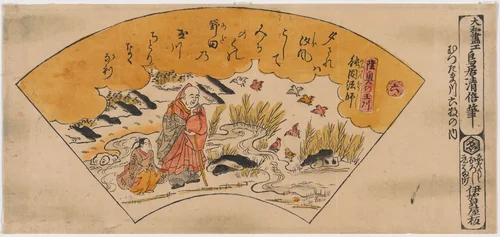 大和畫工鳥居清倍筆
むつたま川六枚の内
伊賀屋板
六
陸奥の玉川
能因法師
夕されは
汐風
こして
みち
のくの
野田乃
玉川
ちとり
なく
なり